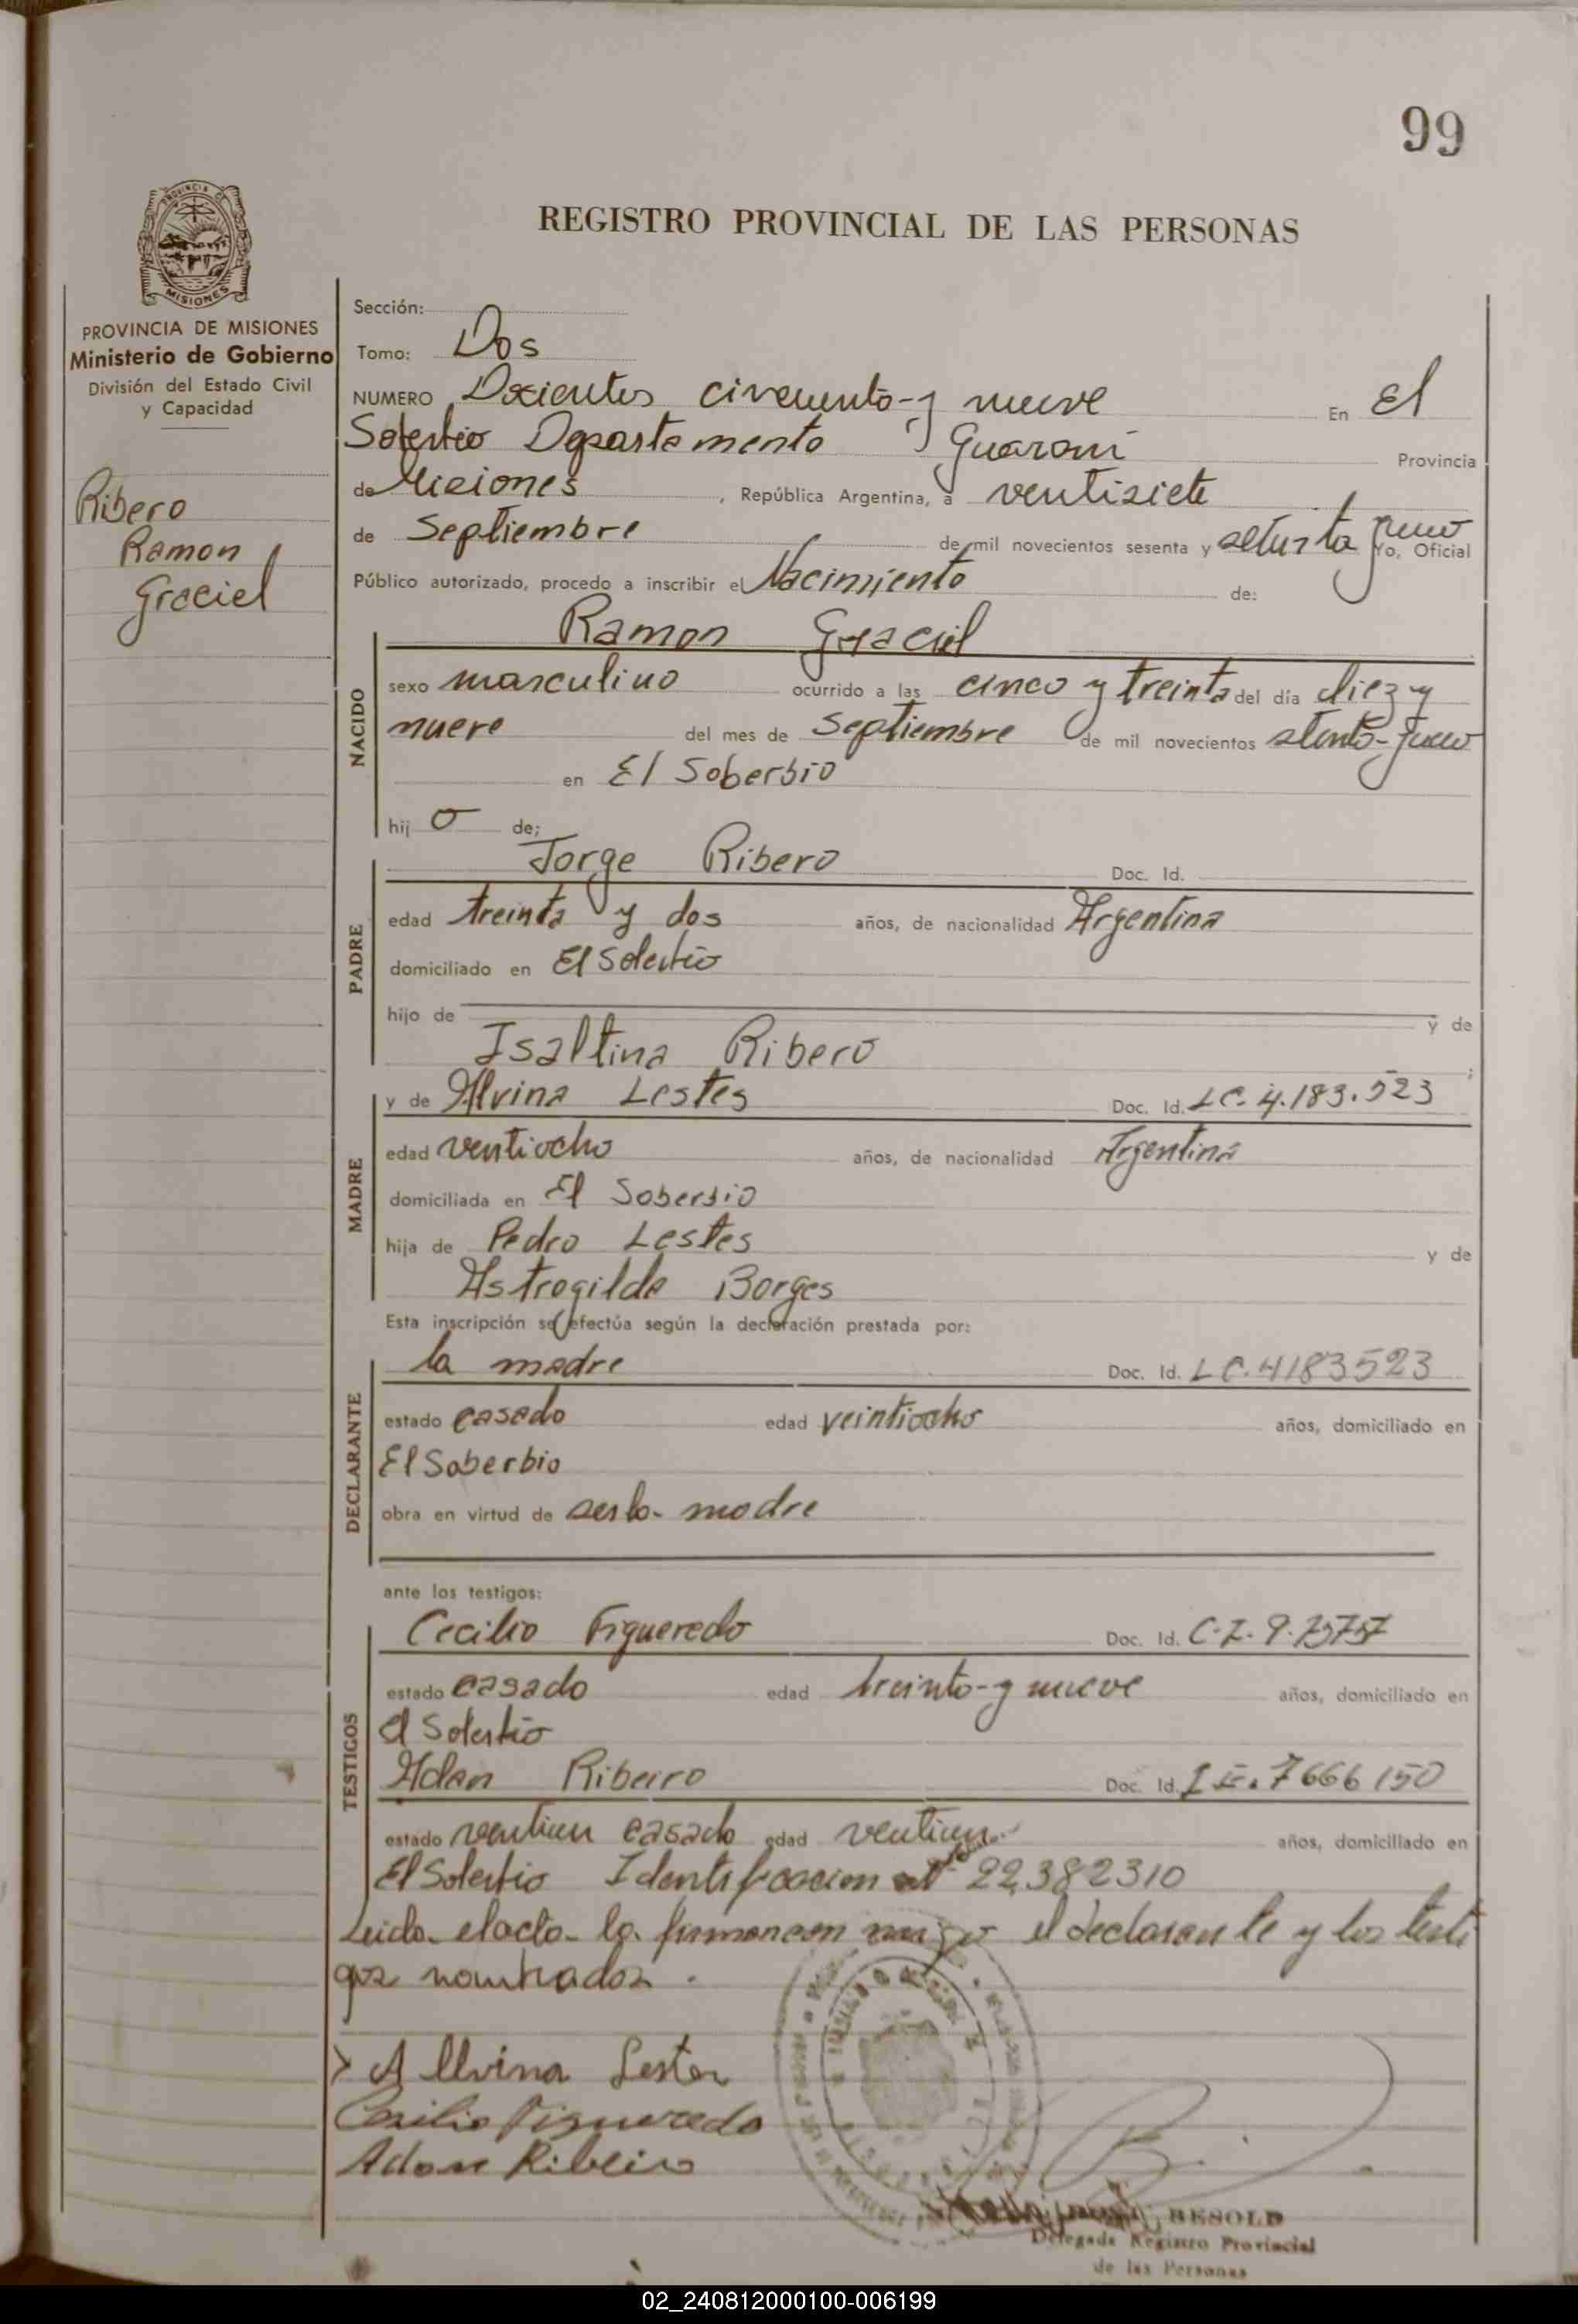 99
REGISTRO PROVINCIAL DE LAS PERSONAS
PROVINCIA DE MISIONES
Ministerio de Gobierno
División del Estado Civil
y Capacidad
Ribero
Ramon
Graciel
Sección:
Tomo: Dos
NUMERO Doscientos cincuenta y nueve En El
Soberbio Departamento Guarani Provincia
de Misiones, República Argentina, a ventisiete
de Septiembre de mil novecientos sesenta y setenta y uno Yo, Oficial
Público autorizado, procedo a inscribir el Nacimiento de:
Ramon Graciel
NACIDO
sexo masculino ocurrido a las cinco y treinta del día diez y
nueve del mes de Septiembre de mil novecientos setenta y uno
en El Soberbio
hij o de;
PADRE
Jorge Ribero Doc. Id.
edad treinta y dos años, de nacionalidad Argentina
domiciliado en El Soberbio
hijo de y de
Isaltina Ribero ;
MADRE
y de Alvina Lestes Doc. Id. LC. 4.183.523
edad ventiocho años, de nacionalidad Argentina
domiciliada en El Soberbio
hija de Pedro Lestes y de
Astrogilda Borges
Esta inscripción se efectúa según la declaración prestada por:
DECLARANTE
la madre Doc. Id. LC. 4183523
estado casado edad veintiocho años, domiciliado en
El Soberbio
obra en virtud de ser la madre
ante los testigos:
TESTIGOS
Cecilio Figueredo Doc. Id. C.I.
estado casado edad treinta y nueve años, domiciliado en
El Soberbio
Adan Ribeiro Doc. Id. 7666150
estado ventiun casado edad ventiun años, domiciliado en
El Soberbio Identificacion Nº 22,382310
Leida el acta la firman con migo el declarante y los testi
gos nombrados.
Alvina Lester
Cecilio Figueredo
Adan Ribeiro
BESOLD
Delegada Registro Provincial
de las Personas
02_240812000100-006199